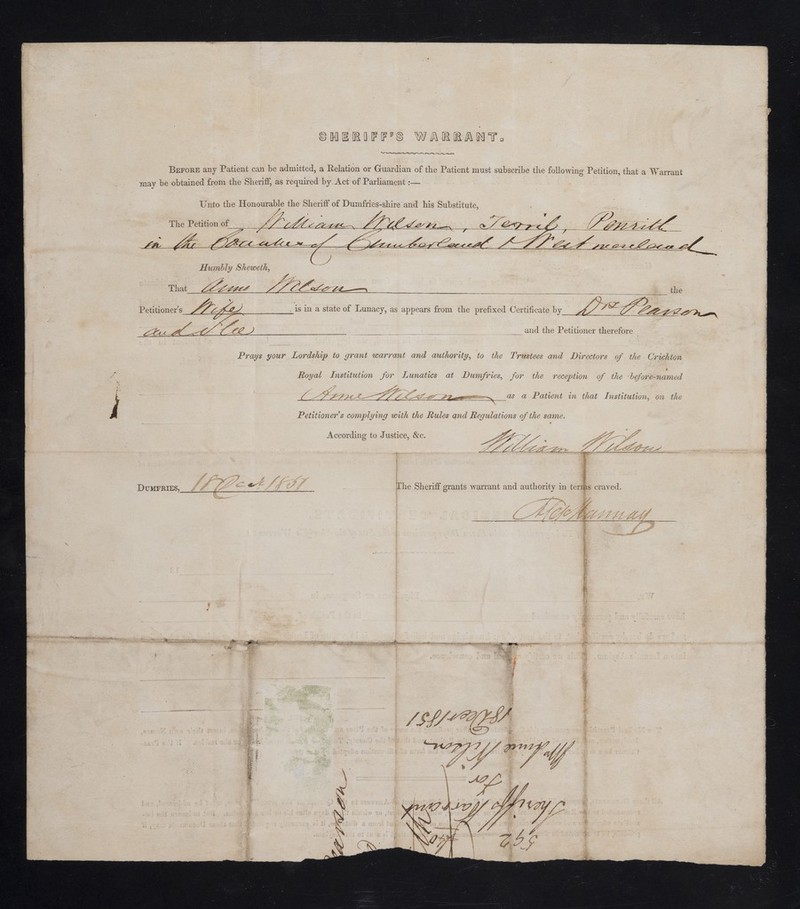 SHERIFF'S WARRANT.
BEFORE any Patient can be admitted, a Relation or Guardian of the Patient must subscribe the following Petition, that a Warrant
may be obtained from the Sheriff, as required by Act of Parliament :—
Unto the Honourable the Sheriff of Dumfries-shire and his Substitute,
The Petition of William Wilson, Terril, Penrith
in the Counties of Cumberland & Westmoreland
Humbly Sheweth,
That Anne Wilson the
Petitioner's Wife is in a state of Lunacy, as appears from the prefixed Certificate by Drs Pearson
and and the Petitioner therefore
Prays your Lordship to grant warrant and authority, to the Trustees and Directors of the Crichton
Royal Institution for Lunatics at Dumfries, for the reception of the before-named
Anne Wilson as a Patient in that Institution, on the
Petitioner's complying with the Rules and Regulations of the same.
According to Justice, &c.
William Wilson
DUMFRIES, 18 Decr 1851
The Sheriff grants warrant and authority in terms craved.
Hannay
592
Sheriffs Warrant
for
Mrs Anne Wilson
18 Decr 1851
earson